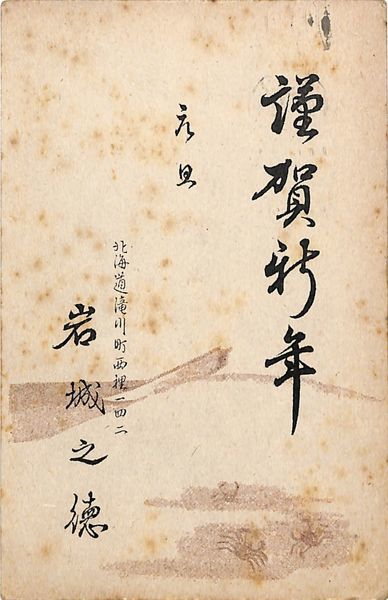 謹賀新年
元旦
北海道滝川町西裡一四二
岩城之徳